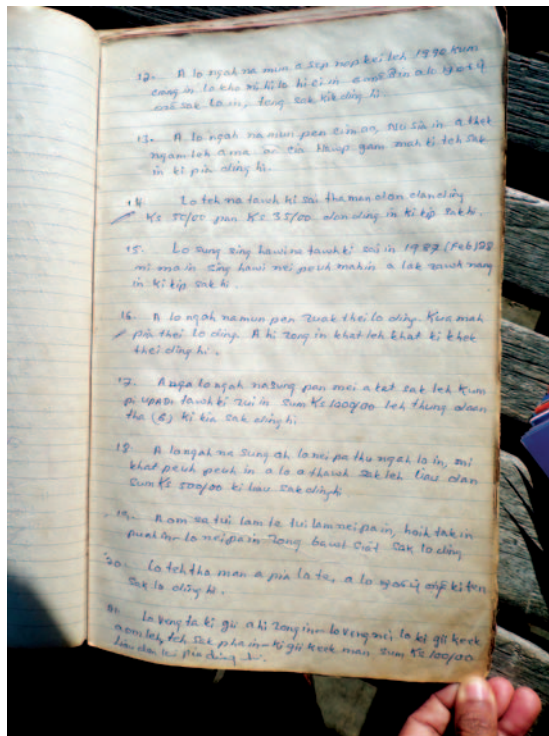 12. A lo ngah na mun a sep nop kei leh 1990 kum
sak la in, teng sak kik ding hi.
13. A lo ngah na mun pen cimaw, Nu sia in a thet
ngam leh ama mah ki teh sak
in ki pia ding hi.
14. Lo teh na tawh ki sai thaman dan ding
Ks 50/00 pan Ks 35/00 dan ding in ki kip sak hi.
15. Lo sung sing hawi na tawh ki sai in 1987 (Feb) 28
ni ma in sing hawi nei peuh mah in a lak zawh nang
in ki kip sak hi
16. A lo ngah na mun pen zuak thei lo ding. Kua mah
pia thei lo ding. A hi zong in khat leh khat ki khek
thei ding hi.
17. lo ngah na sung pan mei a tet sak leh kum
pi upadi tawh ki zui in sum Ks 1000/00 leh thong daan
tha (6) ki kia sak ding hi
18. A lo ngah na sung ah lo nei pa thu ngah lo in, mi
khat peuh peuh in a lo a thawh sak leh liau dan
sum Ks 500/00 ki liau sak ding hi
19. A om sa tui lam te tui lam nei pa in, hoih tak in
puah in lo nei pa in zong bawl siat sak lo ding
20. Lo teh tha man a pia lo te, a lo ki ten
sak lo ding hi.
21. Lo veng ta ki gii a hi zong in lo veng nei lo ki gii keek
a om leh, teh sak pha in ki gii keek man sum Ks 100/00
ding hi.